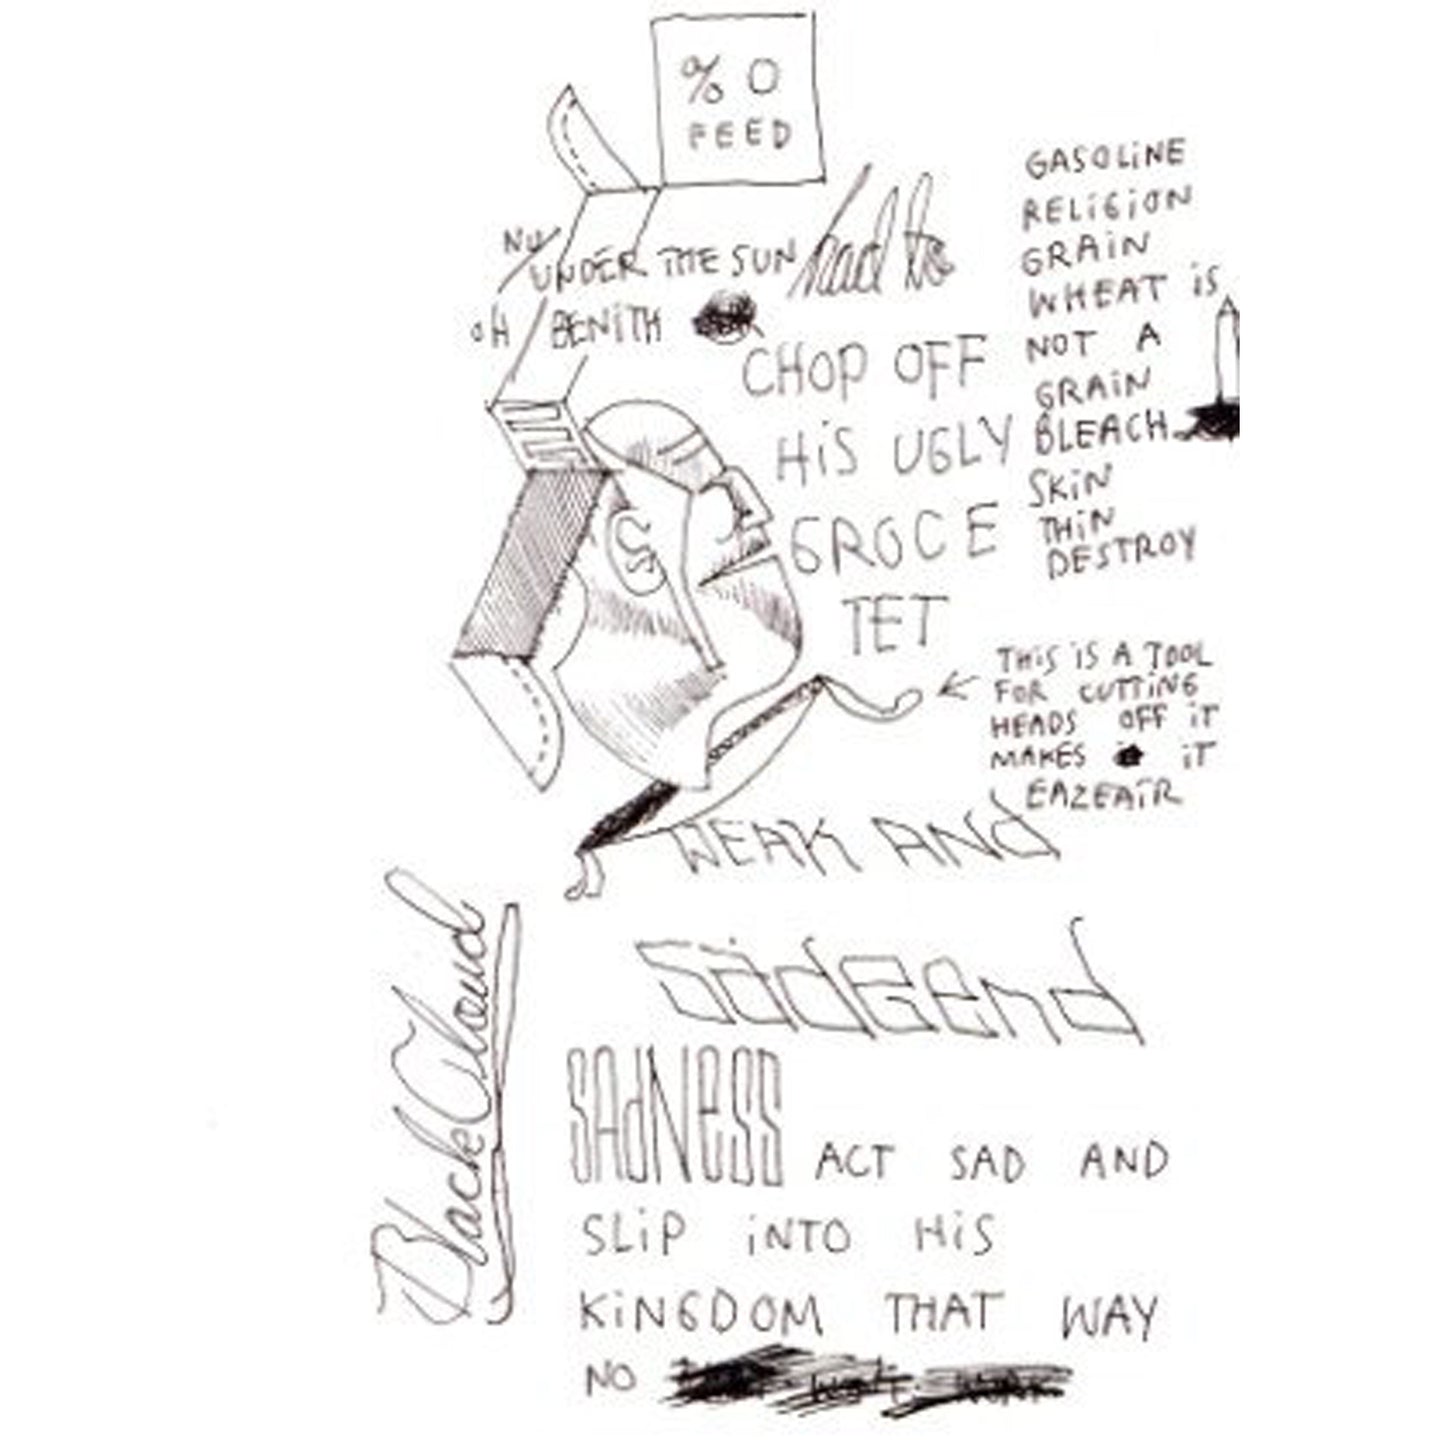 % O
FEED
NU
UNDER THE SUN
had to
OH BENiTH
CHOP OFF
HiS UGLY
GROCE
TET
GASOLiNE
RELiGiON
GRAiN
WHEAT iS
NOT A
GRAiN
BLEACH
SKiN
THiN
DESTROY
THiS iS A TOOL
FOR CUTTiNG
HEADS OFF iT
MAKES iT
EAZEAiR
WEAK ANd
Black Cloud
SAdNESS ACT SAD AND
SLiP iNTO HiS
KiNGDOM THAT WAY
NO